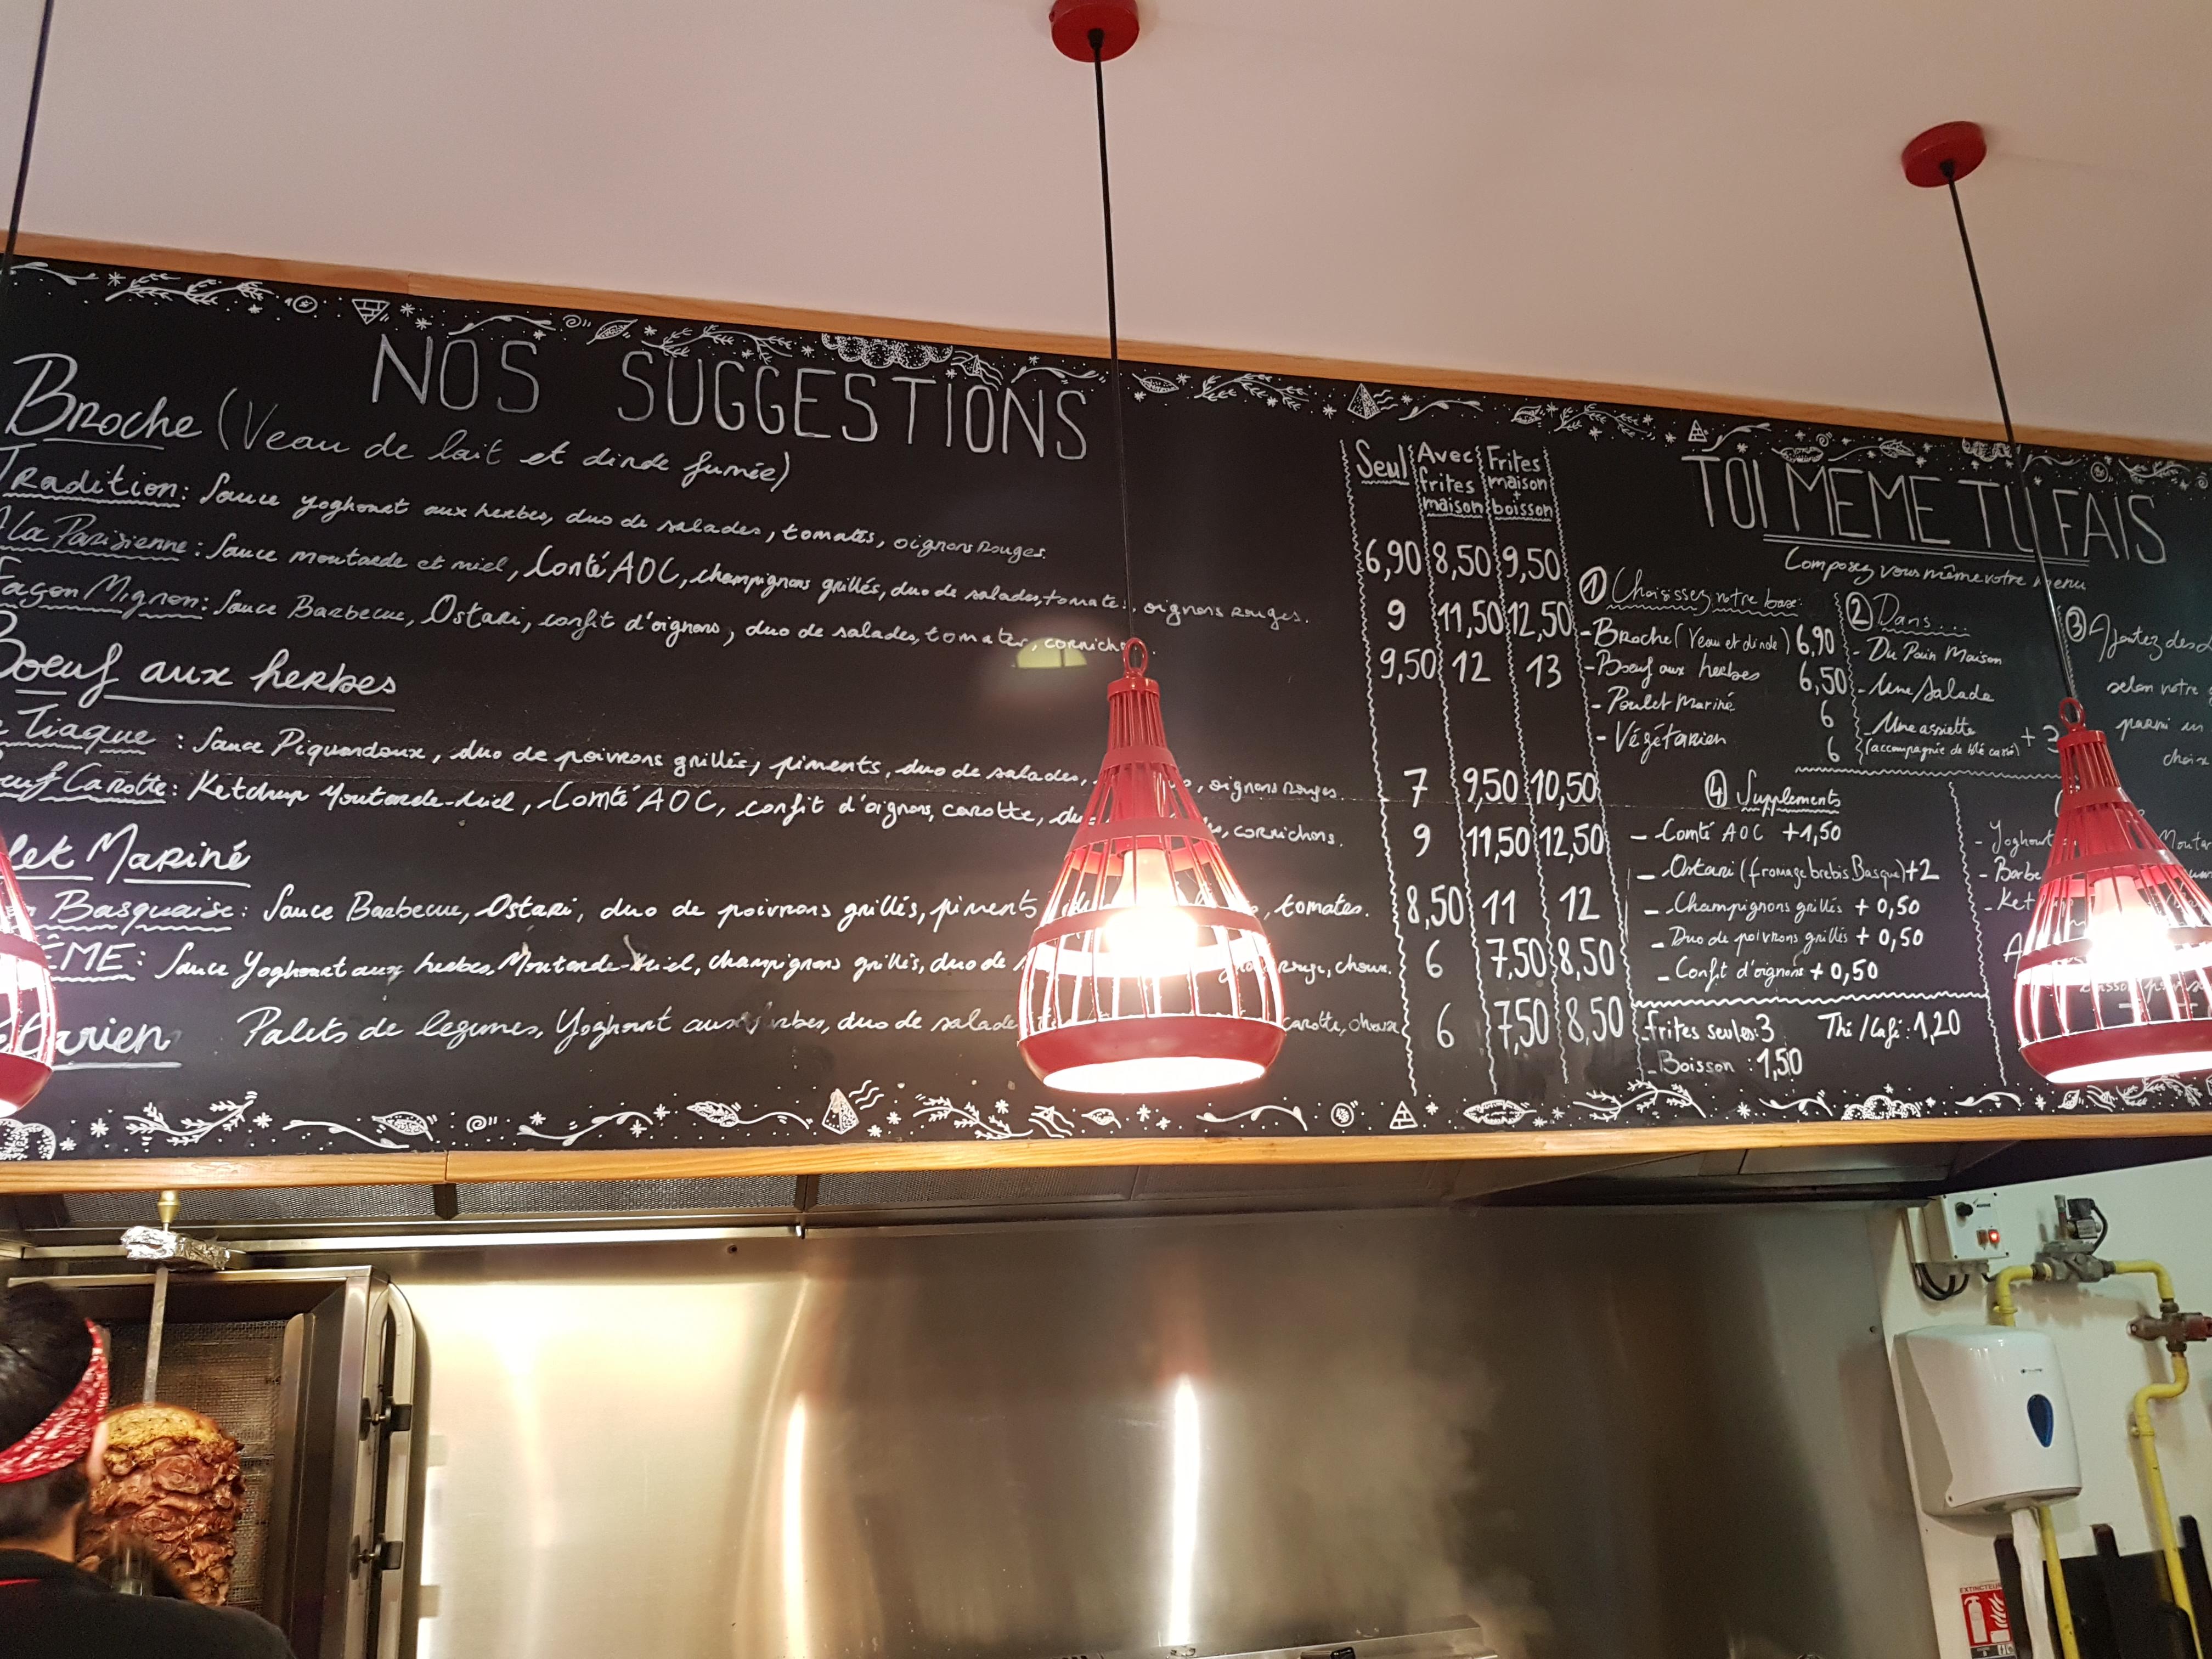 NOS SUGGESTIONS
Broche (Veau de lait et dinde fumée)
Tradition: Sauce yoghourt aux herbes, duo de salades, tomates, oignons rouges.
A la Parisienne: Sauce moutarde et miel, Comté AOC, champignons grillés, duo de salades, tomates, oignons rouges.
Façon Mignon: Sauce Barbecue, Ostari, confit d'oignons, duo de salades, tomates,
Boeuf aux herbes
Tiaque : Sauce Piquandoux, duo de poivrons grillés, piments, duo de salades, oignons rouges.
Carotte: Ketchup Moutarde-Miel, Comté AOC, confit d'oignons, carotte, cornichons.
Mariné
Basquaise: Sauce Barbecue, Ostari, duo de poivrons grillés, piments tomates.
Sauce Yoghourt aux herbes, Moutarde-Miel, champignons grillés, duo de rouge, choux.
Palets de legumes, Yoghourt aux duo de salade carotte, choux
Seul
Avec frites maison
Frites maison + boisson
6,90 8,50 9,50
9 11,50 12,50
9,50 12 13
7 9,50 10,50
9 11,50 12,50
8,50 11 12
6 7,50 8,50
6 7,50 8,50
TOI MEME TU FAIS
Composez vous même votre menu
1 Choisissez votre base:
- Broche (Veau et dinde) 6,90
- Boeuf aux herbes 6,50
- Poulet Mariné 6
- Végétarien 6
2 Dans....
- Du Pain Maison
- Une Salade
- Une assiette
(accompagnée de blé cami) + 3
3 Ajoutez des
selon votre
parmi un
choix
4 Supplements
- Comté AOC +1,50
- Ostari (fromage brebis Basque) +2
- Champignons grillés + 0,50
- Duo de poivrons grillés + 0,50
- Confit d'oignons + 0,50
- Frites seules: 3
Thé / Café: 1,20
- Boisson : 1,50
EXTINCTEUR